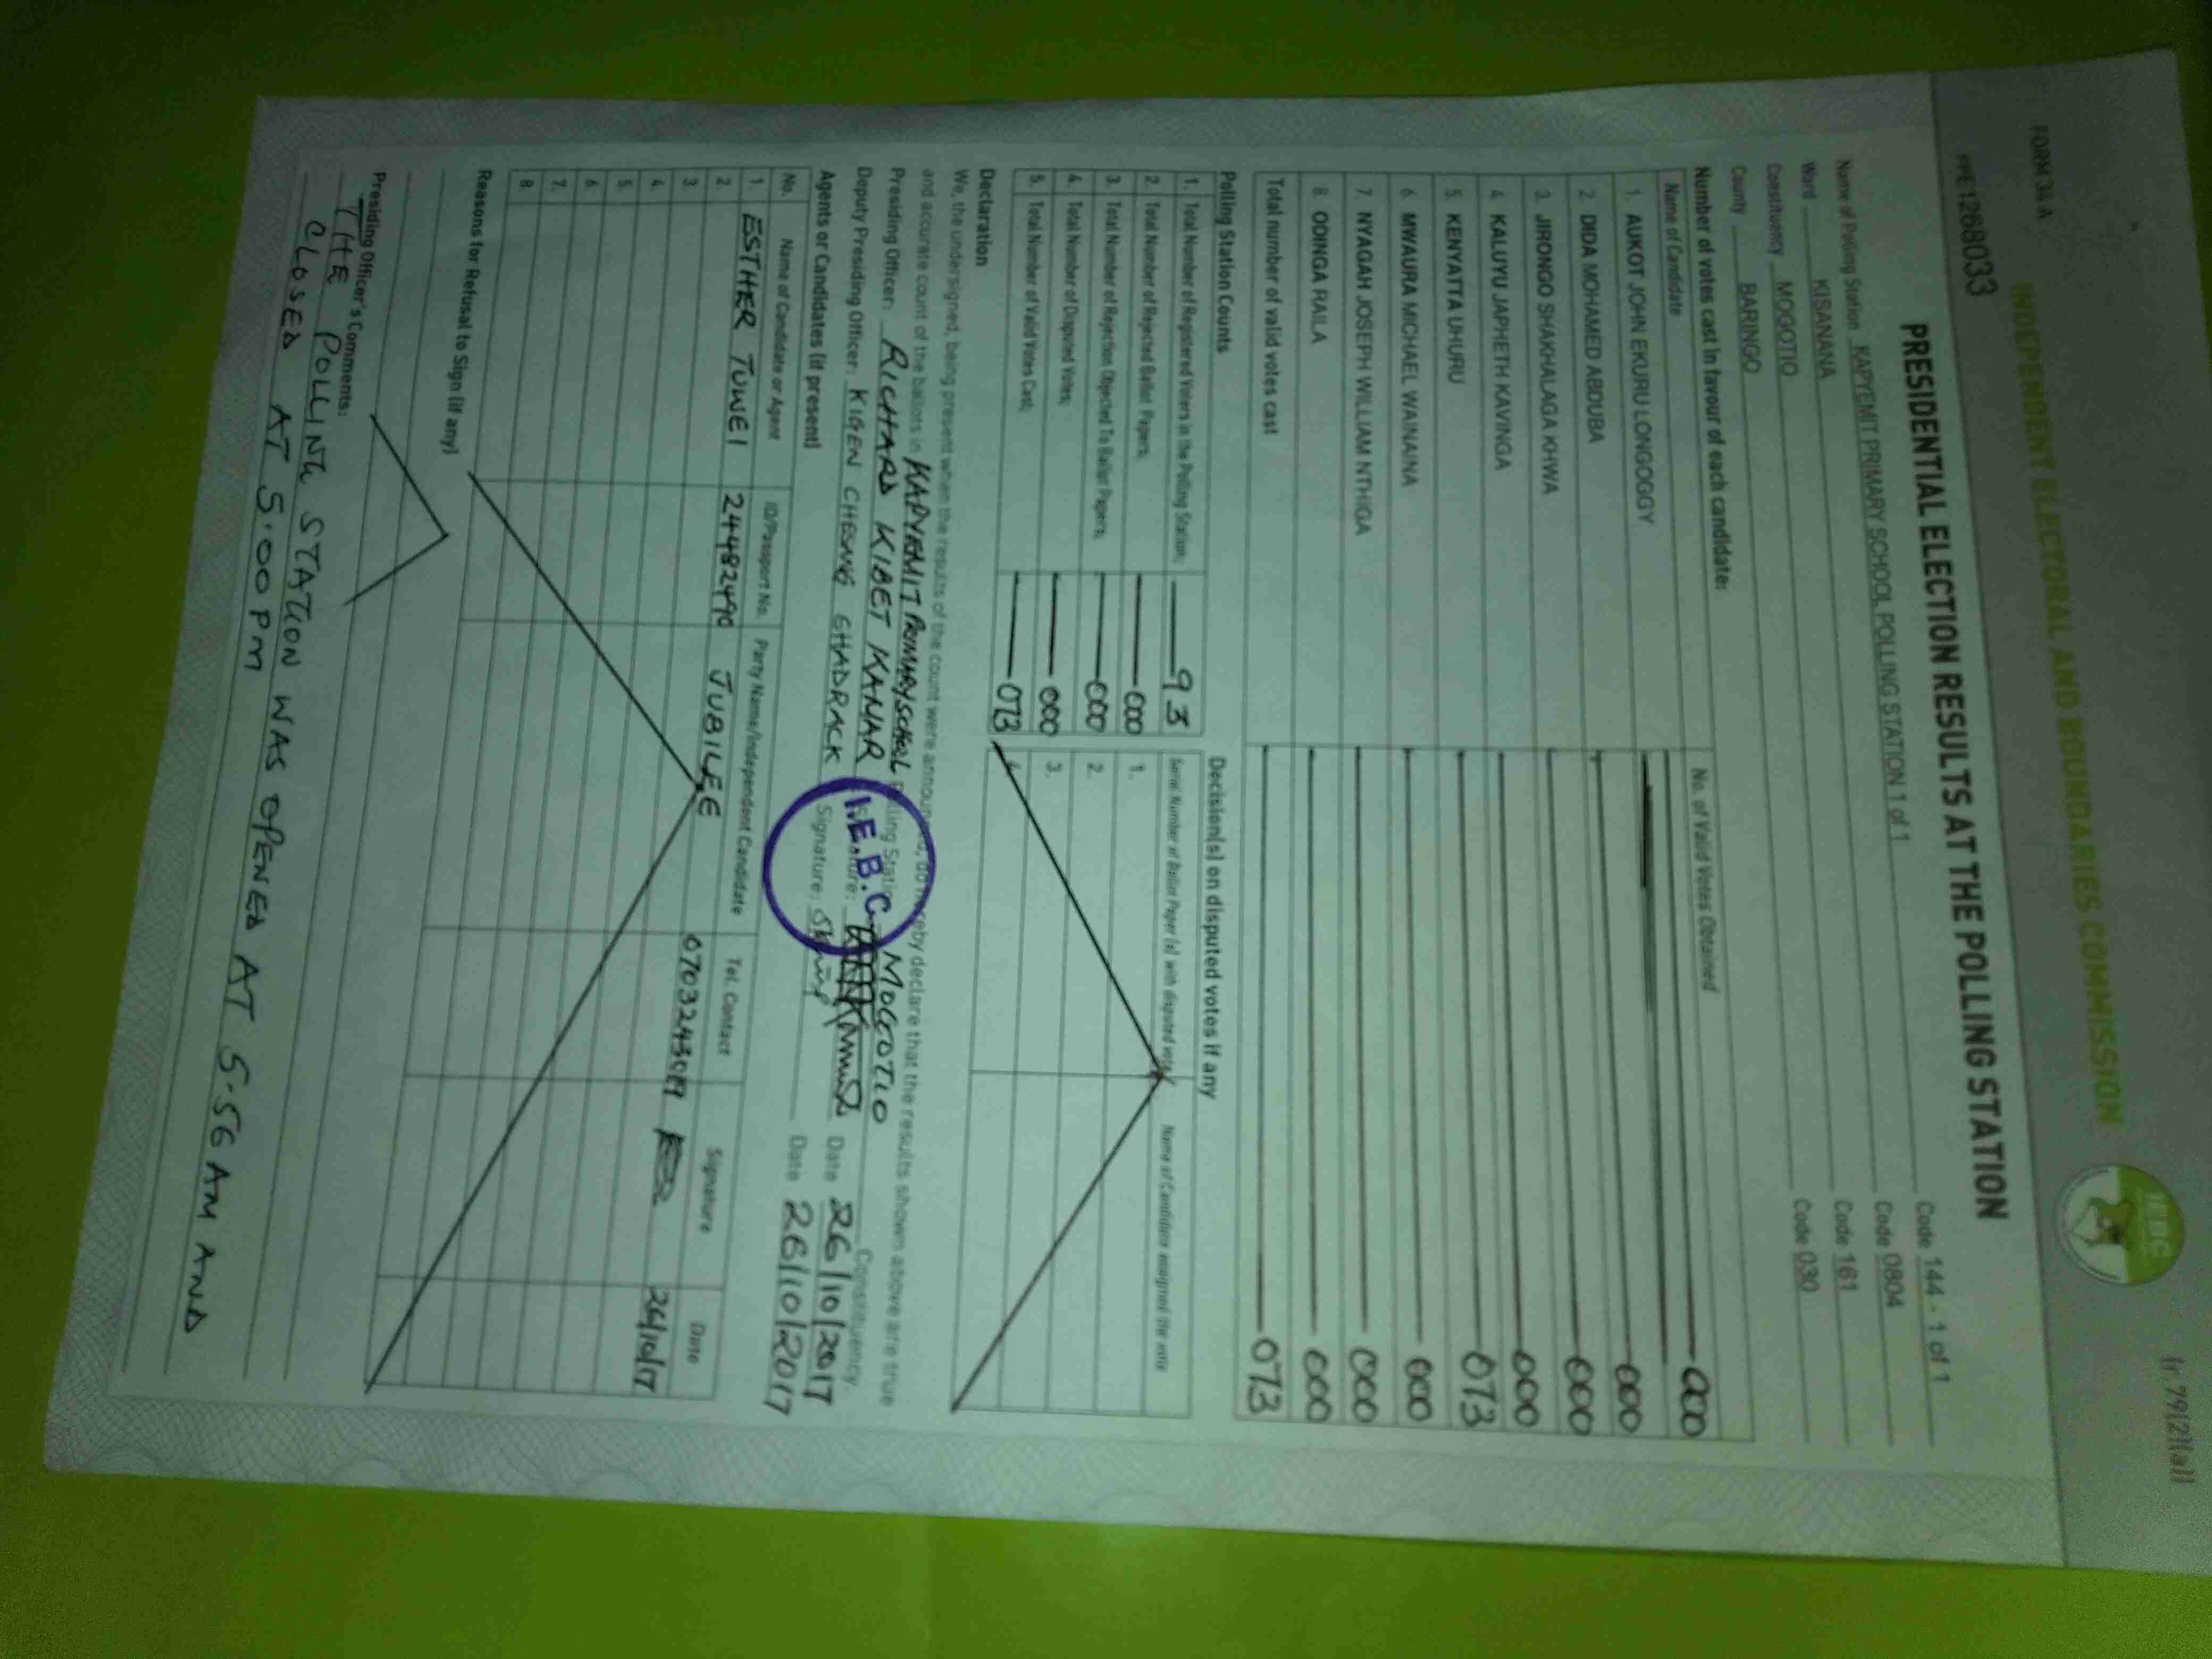 (r.79(2)(a))
FORM 34 A
INDEPENDENT ELECTORAL AND BOUNDARIES COMMISSION
IEBC
PRE 1268033
PRESIDENTIAL ELECTION RESULTS AT THE POLLING STATION
Name of Polling Station KAPYEMIT PRIMARY SCHOOL POLLING STATION 1 of 1 Code 144 - 1 of 1
Ward KISANANA Code 0804
Constituency MOGOTIO Code 161
County BARINGO Code 030
Number of votes cast in favour of each candidate:
Name of Candidate No. of Valid Votes Obtained
000
1. AUKOT JOHN EKURU LONGOGGY 000
2. DIDA MOHAMED ABDUBA 000
3. JIRONGO SHAKHALAGA KHWA 000
4. KALUYU JAPHETH KAVINGA 073
5. KENYATTA UHURU
6. MWAURA MICHAEL WAINAINA 000
7. NYAGAH JOSEPH WILLIAM NTHIGA 000
8. ODINGA RAILA 000
Total number of valid votes cast 073
Polling Station Counts
Decision(s) on disputed votes if any
1. Total Number of Registered Voters in the Polling Station; 93
2. Total Number of Rejected Ballot Papers; 000
3. Total Number of Rejection Objected To Ballot Papers; 000
4. Total Number of Disputed Votes; 000
5. Total Number of Valid Votes Cast; 073
Serial Number of Ballot Paper (s) with disputed votes Name of Candidate assigned the vote
1.
2.
3.
4.
Declaration
We, the undersigned, being present when the results of the count were announced, do hereby declare that the results shown above are true
and accurate count of the ballots in KAPYEMIT PRIMARY SCHOOL Polling Station MOGOTIO Constituency
Presiding Officer: RICHARD KIBET KANAR Signature: Date 26/10/2017
Deputy Presiding Officer: KIGEN CHESANG SHADRACK Signature: Date 26/10/2017
I.E.B.C
Agents or Candidates (if present)
No. Name of Candidate or Agent ID/Passport No. Party Name/Independent Candidate Tel. Contact Signature Date
1. ESTHER TUWEI 24482490 JUBILEE 0703243019 26/10/17
2.
3.
4.
5.
6.
7.
8.
Reasons for Refusal to Sign (if any)
Presiding Officer's Comments:
THE POLLING STATION WAS OPENED AT 5.56 AM AND
CLOSED AT 5.00 PM